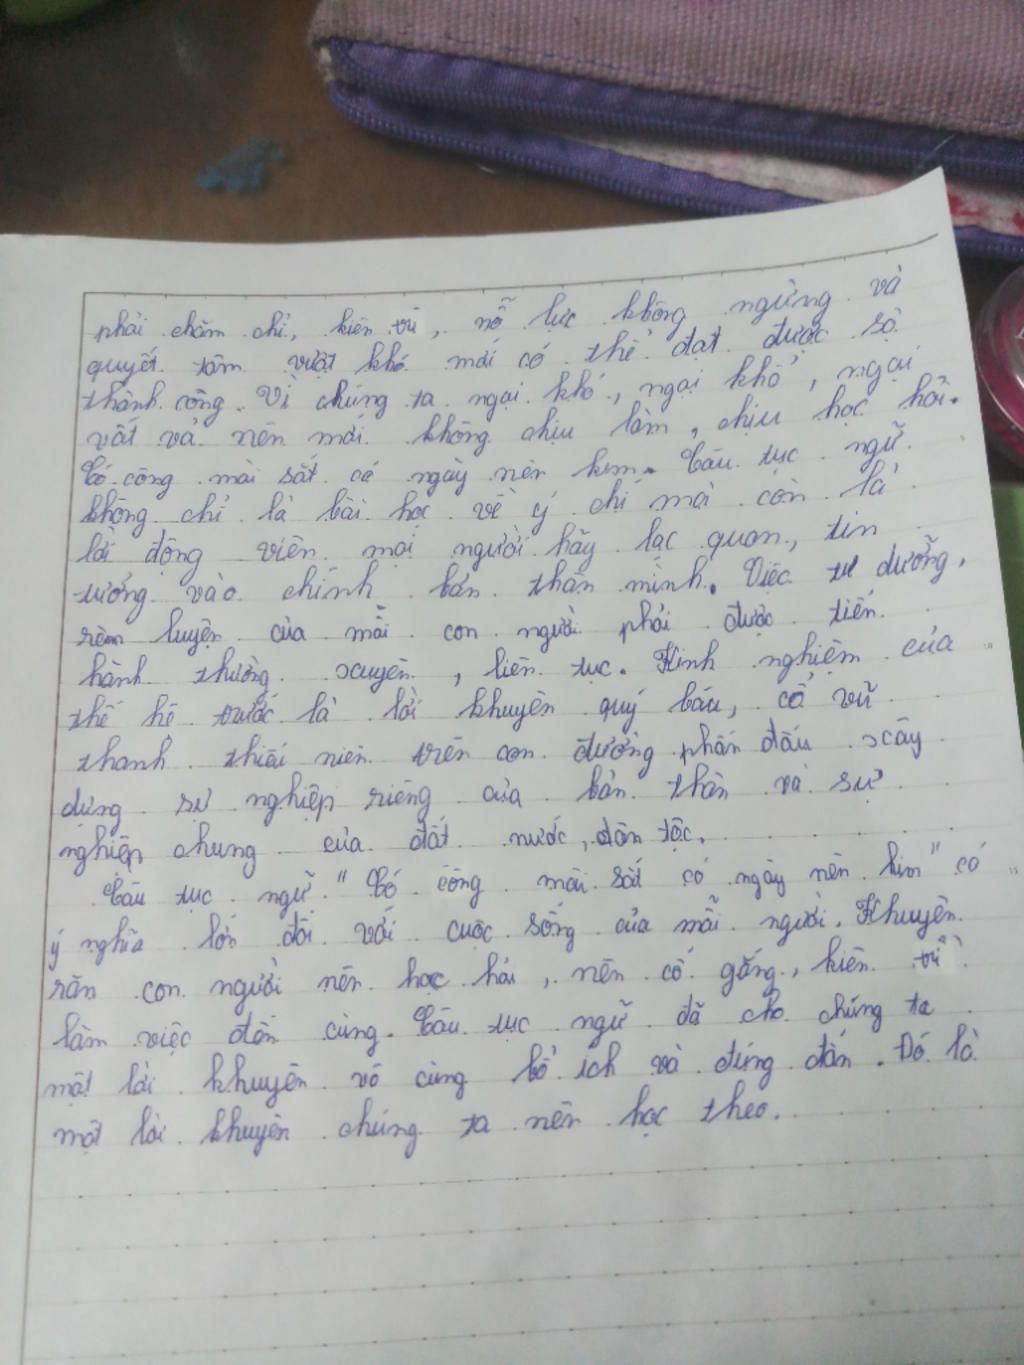 phải chăm chỉ, kiên trì, nỗ lực không ngừng và
quyết tâm vượt khó mới có thể đạt được sự
thành công. Vì chúng ta ngại khó, ngại khổ, ngại
vất vả nên mới không chịu làm, chịu học hỏi.
Có công mài sắt có ngày nên kim. Câu tục ngữ
không chỉ là bài học về ý chí mà còn là
lời động viên mọi người hãy lạc quan, tin
tưởng vào chính bản thân mình. Việc tu dưỡng,
rèn luyện của mỗi con người phải được tiến
hành thường xuyên, liên tục. Kinh nghiệm của
thế hệ trước là lời khuyên quý báu, cổ vũ
thanh thiếu niên trên con đường phấn đấu xây
dựng sự nghiệp riêng của bản thân và sự
nghiệp chung của đất nước, dân tộc.
Câu tục ngữ "Có công mài sắt có ngày nên kim" có
ý nghĩa lớn đối với cuộc sống của mỗi người. Khuyên
răn con người nên học hỏi, nên cố gắng, kiên trì
làm việc đến cùng. Câu tục ngữ đã cho chúng ta
một lời khuyên vô cùng bổ ích và đúng đắn. Đó là
một lời khuyên chúng ta nên học theo.